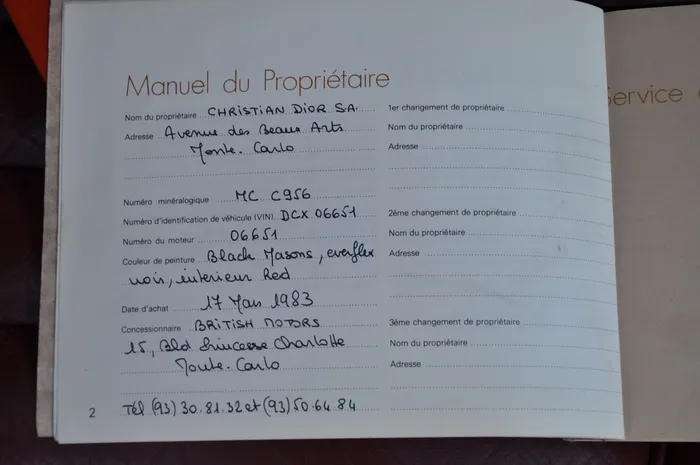 Manuel du Propriétaire
Nom du propriétaire CHRISTIAN DIOR S.A.
Adresse Avenue des Beaux Arts
Monte-Carlo
Numéro minéralogique MC C956
Numéro d'identification de véhicule (VIN) DCX 06651
Numéro du moteur 06651
Couleur de peinture Black Masons, everflex
noir, interieur Red
Date d'achat 17 Mars 1983
Concessionnaire BRITISH MOTORS
15, Bld Princesse Charlotte
Monte-Carlo
Tél (93) 30.81.32 et (93) 50.64.84
2
1er changement de propriétaire
Nom du propriétaire
Adresse
2ème changement de propriétaire
Nom du propriétaire
Adresse
3ème changement de propriétaire
Nom du propriétaire
Adresse
Service